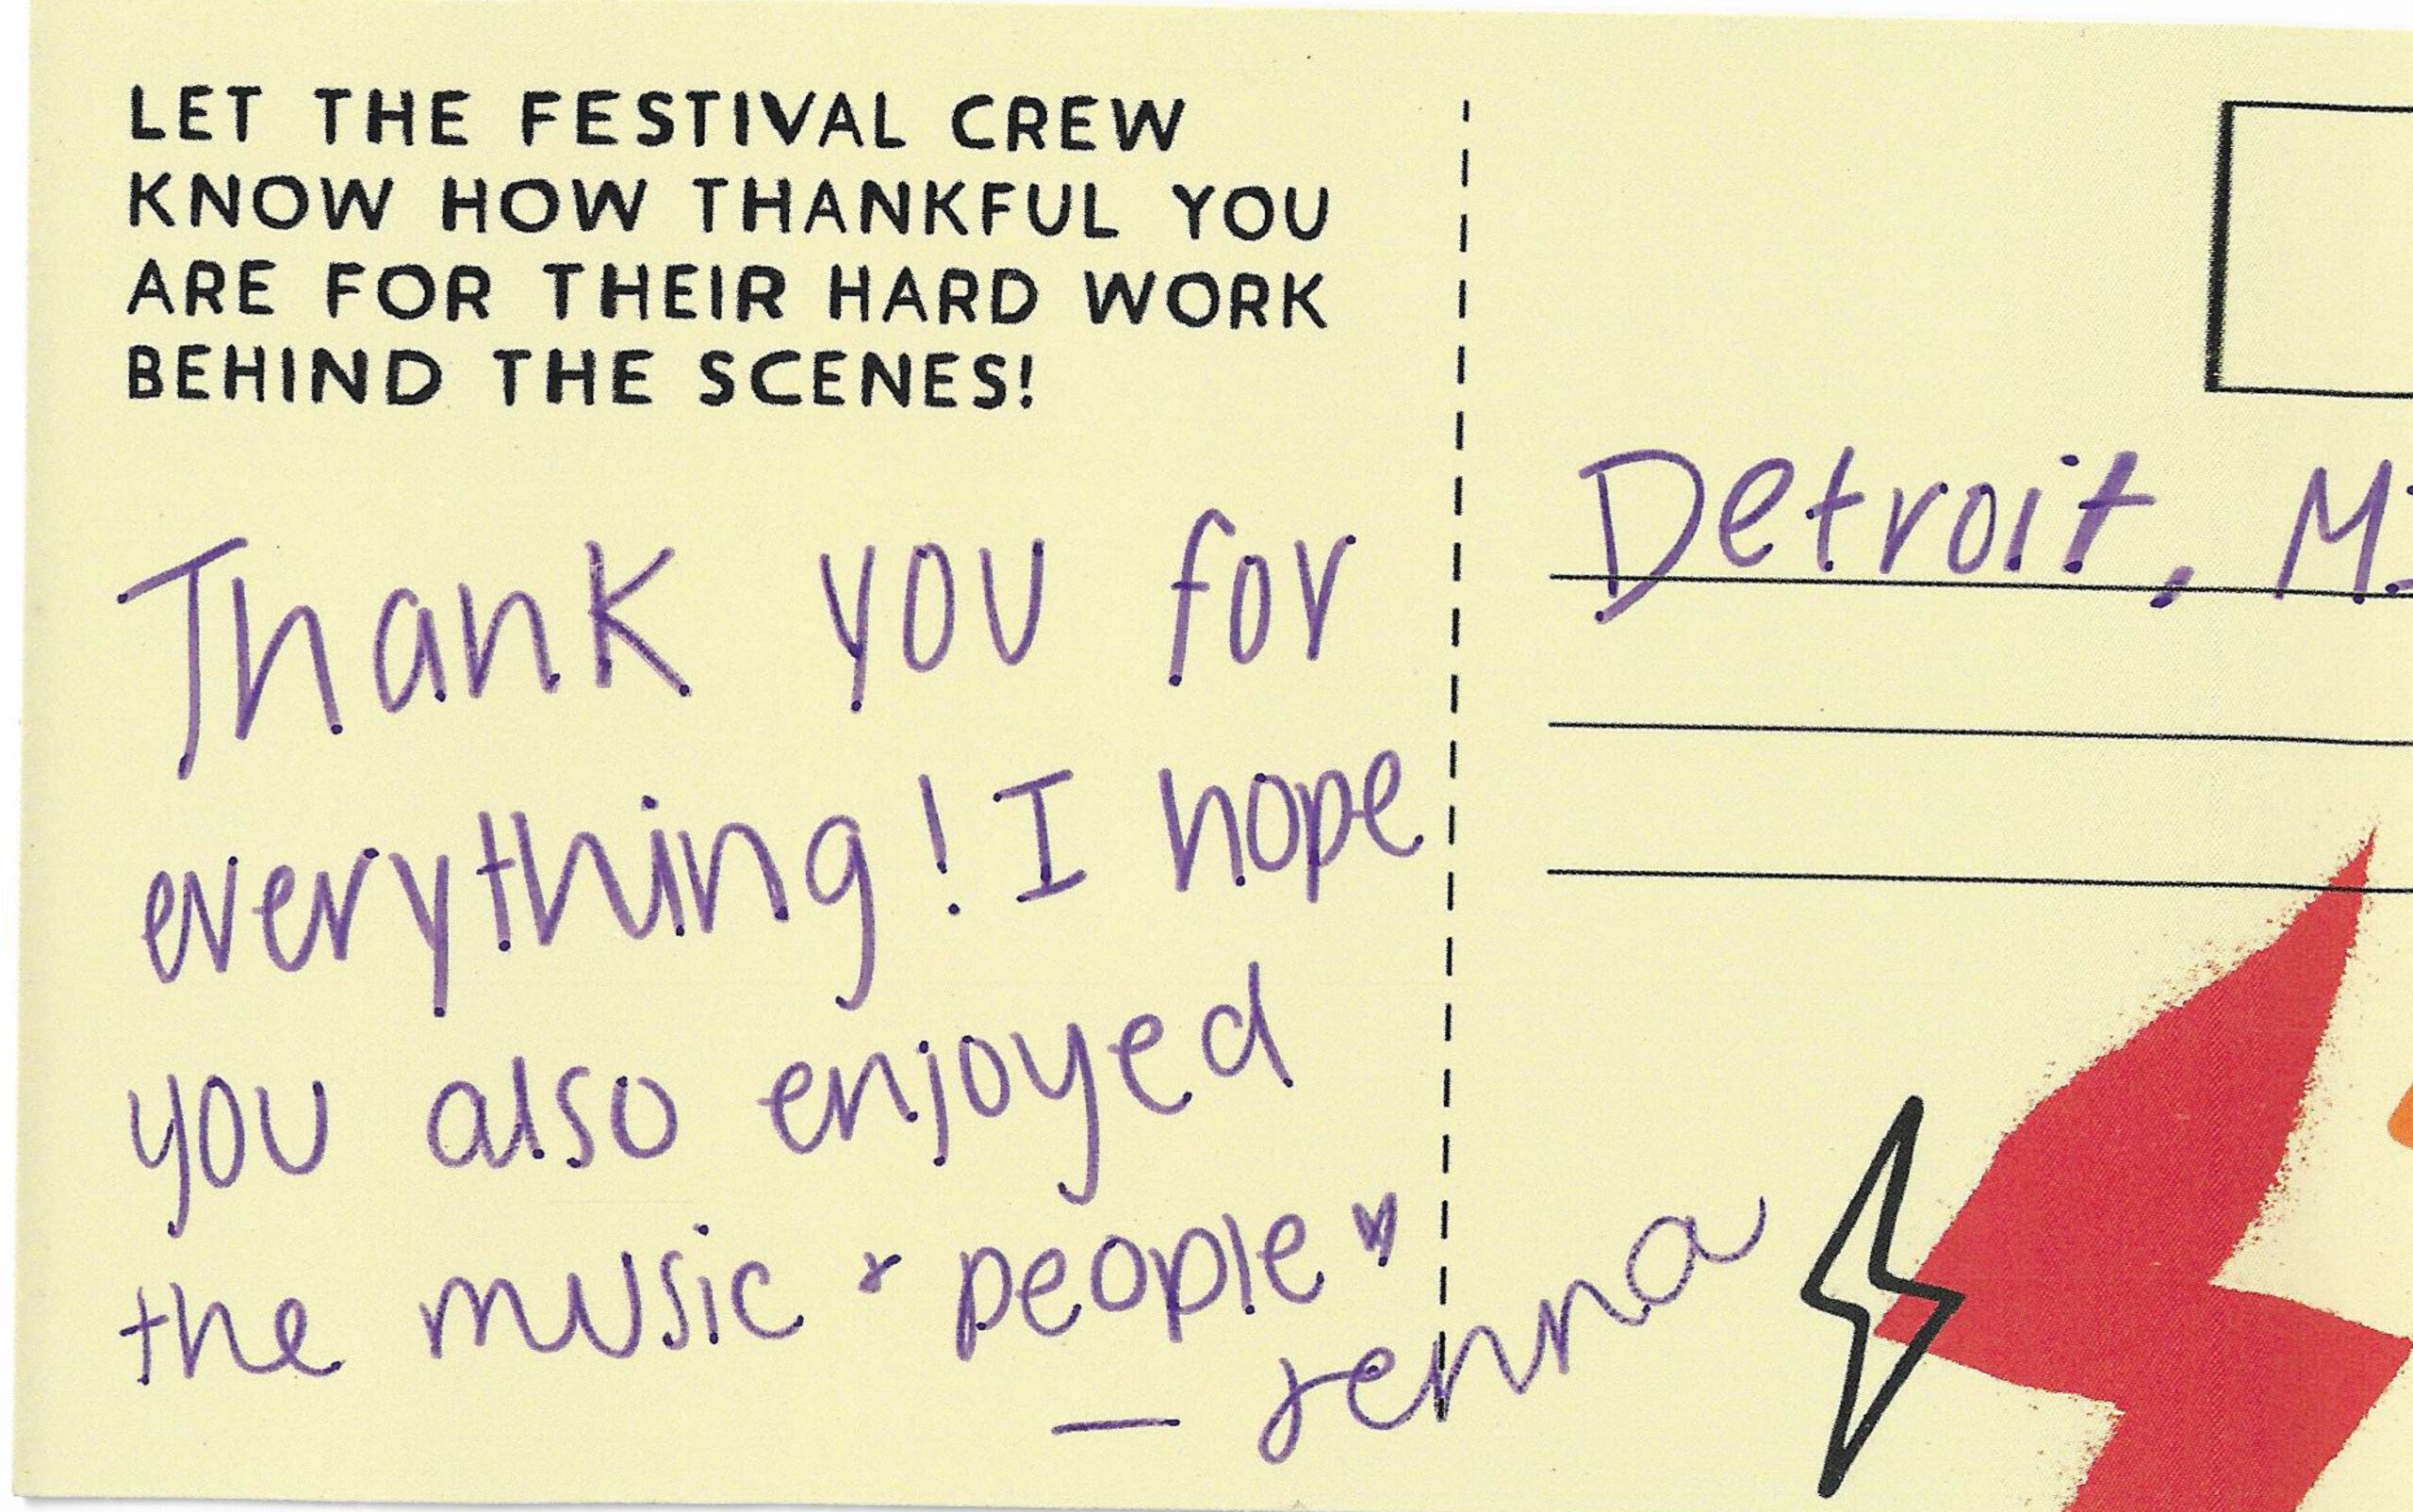 LET THE FESTIVAL CREW
KNOW HOW THANKFUL YOU
ARE FOR THEIR HARD WORK
BEHIND THE SCENES!
Thank you for
everything! I hope
you also enjoyed
the music + people ♥
— Jenna
Detroit, MI